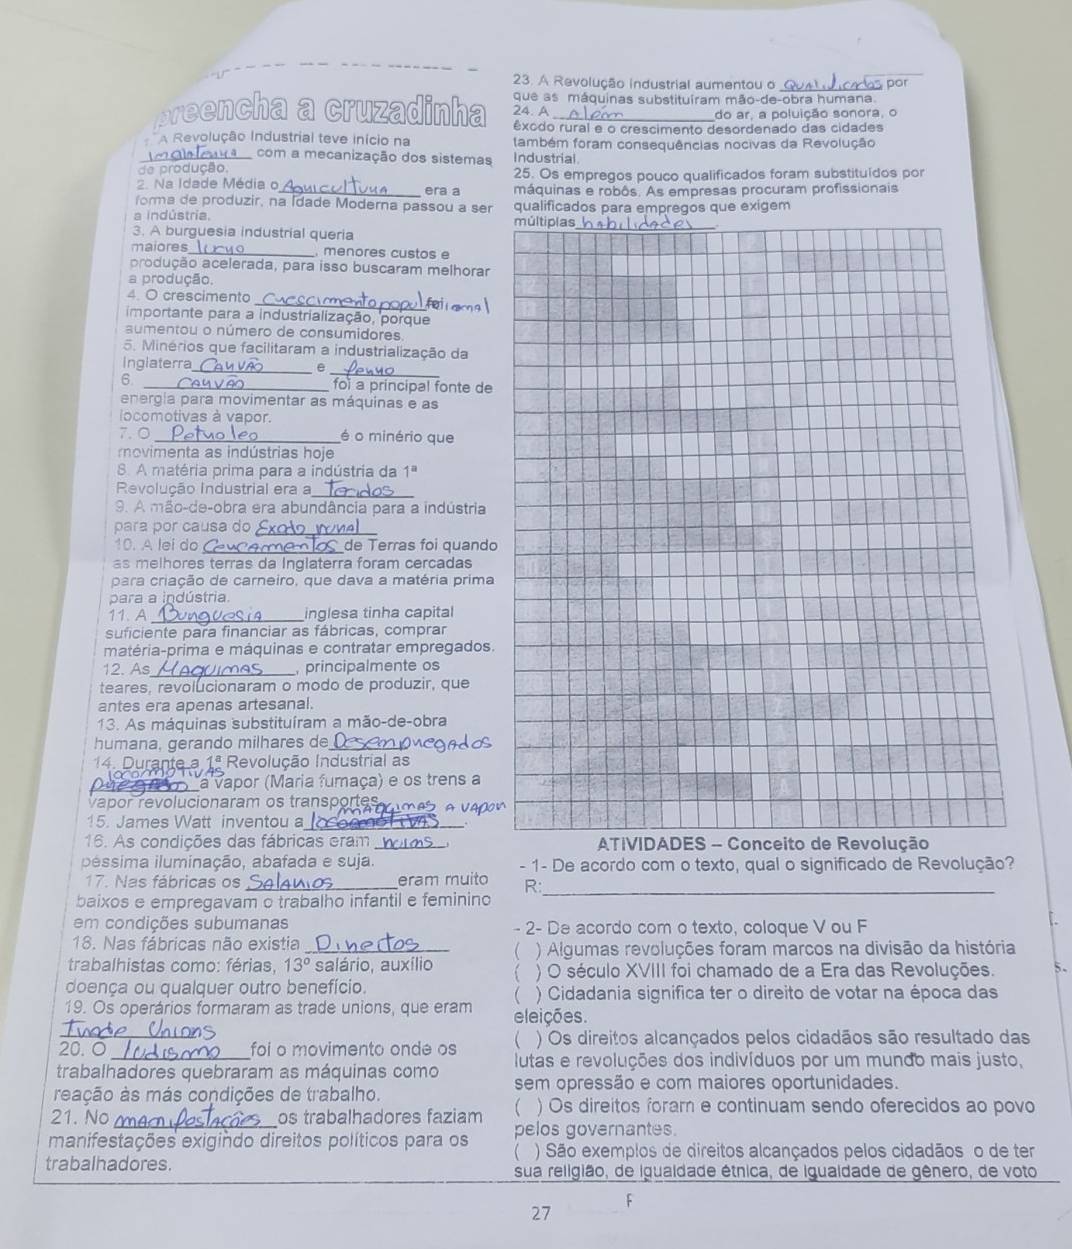 preencha a cruzadinha
1. A Revolução Industrial teve início na
Inglaterra com a mecanização dos sistemas
de produção.
2. Na Idade Média o Agricultura era a
forma de produzir, na Idade Moderna passou a ser
a indústria.
3. A burguesia industrial queria
maiores lucro, menores custos e
produção acelerada, para isso buscaram melhorar
a produção.
4. O crescimento crescimento populacional foi
importante para a industrialização, porque
aumentou o número de consumidores.
5. Minérios que facilitaram a industrialização da
Inglaterra Carvão e ferro
6. Carvão foi a principal fonte de
energia para movimentar as máquinas e as
locomotivas à vapor.
7. O Petroleo é o minério que
movimenta as indústrias hoje
8. A matéria prima para a indústria da 1ª
Revolução Industrial era a Tecidos
9. A mão-de-obra era abundância para a indústria
para por causa do Exodo rural
10. A lei do Cercamentos de Terras foi quando
as melhores terras da Inglaterra foram cercadas
para criação de carneiro, que dava a matéria prima
para a indústria.
11. A Burguesia inglesa tinha capital
suficiente para financiar as fábricas, comprar
matéria-prima e máquinas e contratar empregados.
12. As Maquinas, principalmente os
teares, revolucionaram o modo de produzir, que
antes era apenas artesanal.
13. As máquinas substituíram a mão-de-obra
humana, gerando milhares de Desempregados
14. Durante a 1ª Revolução Industrial as
locomotivas
a vapor (Maria fumaça) e os trens a
vapor revolucionaram os transportes.
maquimas a vapor
15. James Watt inventou a locomotivas.
16. As condições das fábricas eram ruims,
péssima iluminação, abafada e suja.
17. Nas fábricas os Salarios eram muito
baixos e empregavam o trabalho infantil e feminino
em condições subumanas
18. Nas fábricas não existia Direitos
trabalhistas como: férias, 13º salário, auxílio
doença ou qualquer outro benefício.
19. Os operários formaram as trade unions, que eram
Trade Unions
20. O ludismo foi o movimento onde os
trabalhadores quebraram as máquinas como
reação às más condições de trabalho.
21. No manifestações os trabalhadores faziam
manifestações exigindo direitos políticos para os
trabalhadores.
23. A Revolução Industrial aumentou o por
que as máquinas substituíram mão-de-obra humana.
24. A Além do ar, a poluição sonora, o
êxodo rural e o crescimento desordenado das cidades
também foram consequências nocivas da Revolução
Industrial.
25. Os empregos pouco qualificados foram substituídos por
máquinas e robôs. As empresas procuram profissionais
qualificados para empregos que exigem
múltiplas habilidades.
ATIVIDADES – Conceito de Revolução
- 1- De acordo com o texto, qual o significado de Revolução?
R:
- 2- De acordo com o texto, coloque V ou F
( ) Algumas revoluções foram marcos na divisão da história
( ) O século XVIII foi chamado de a Era das Revoluções.
( ) Cidadania significa ter o direito de votar na época das
eleições.
( ) Os direitos alcançados pelos cidadãos são resultado das
lutas e revoluções dos indivíduos por um mundo mais justo,
sem opressão e com maiores oportunidades.
( ) Os direitos foram e continuam sendo oferecidos ao povo
pelos governantes.
( ) São exemplos de direitos alcançados pelos cidadãos o de ter
sua religião, de igualdade étnica, de igualdade de gênero, de voto
27
F